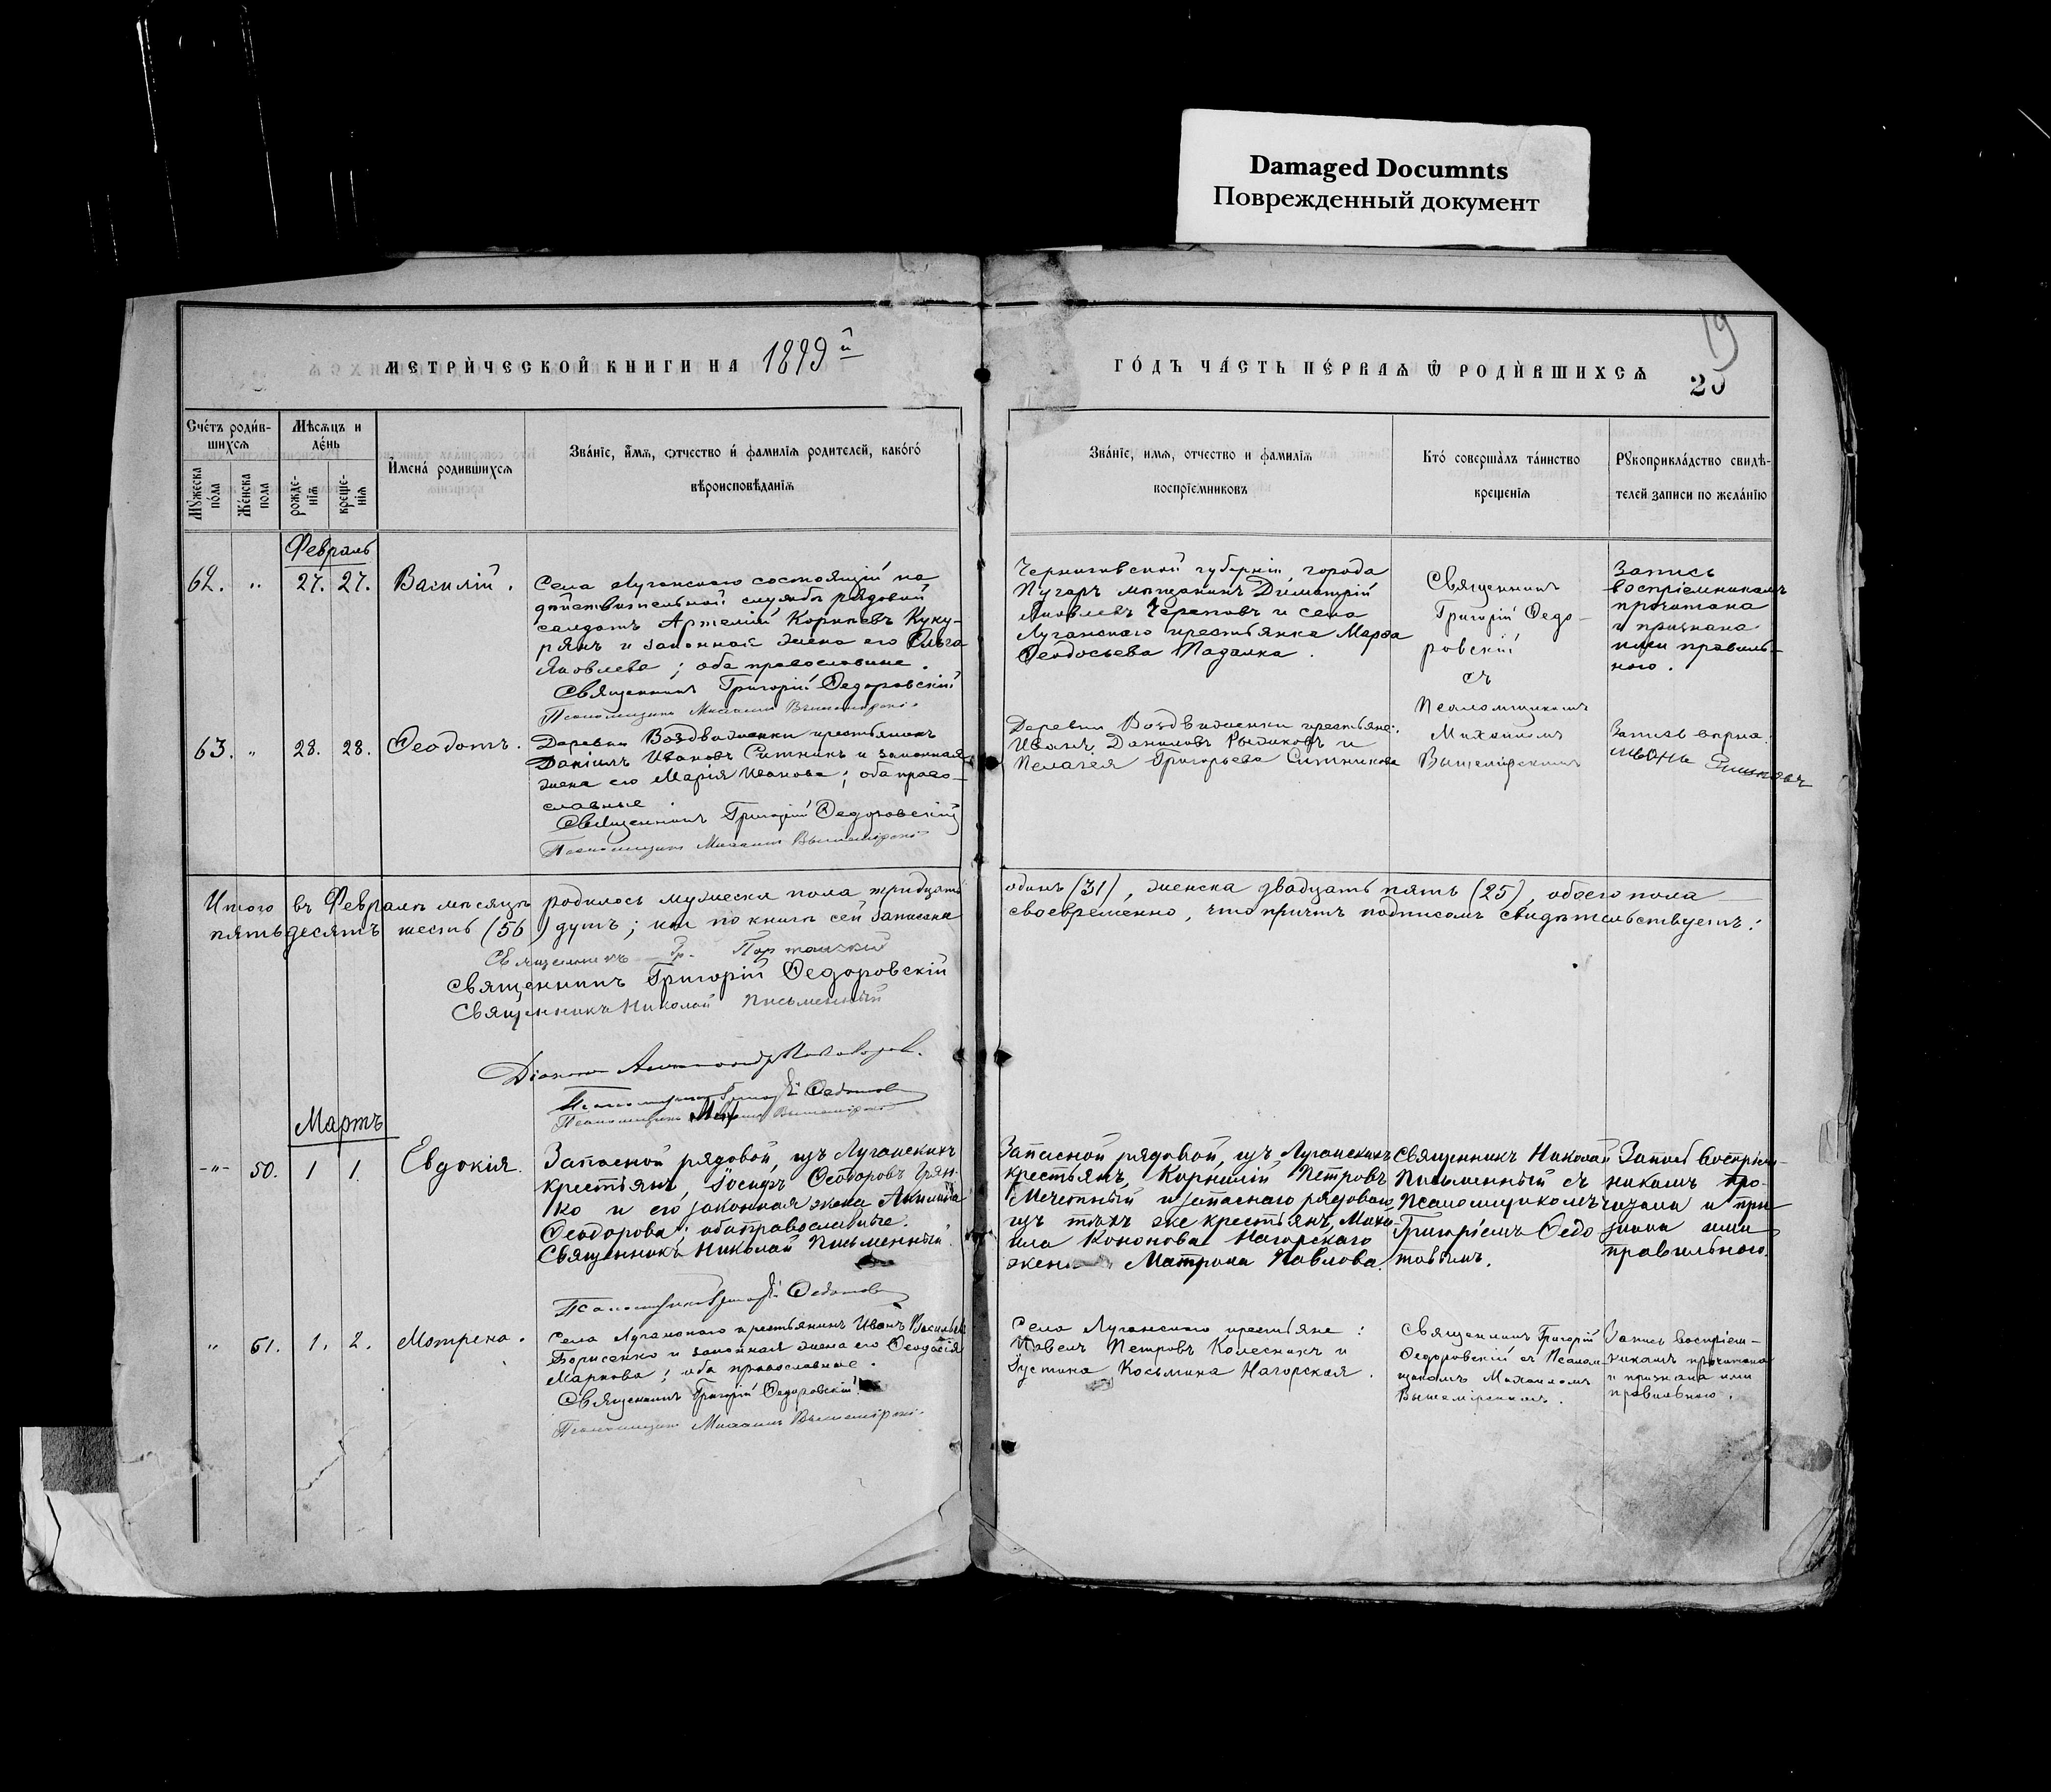 Damaged Documnts
Поврежденный документ
МЕТРИ́ЧЕСКОЙ КНИГИ НА 1899й
ГО́ДЪ ЧА́СТЬ ПЕ́РВАѦ Ѿ РОДИ́ВШИХСѦ
19
Сче́тъ роди́в-
шихсѧ
Мѣсѧцъ и
де́нь
Мꙋжеска по́ла
Же́нска пола
рожде-
нїѧ
креще-
нїѧ
И́мена́ роди́вшихсѧ
Зва́нїе, и́мѧ, отчество и́ фамилїѧ родителей, како́гѡ
вѣроисповѣ́данїѧ
Зва́нїе, имѧ, отчество и фамилїѧ
воспрїемниковъ
Кто́ соверша́лъ та́инство
креще́нїѧ
Рꙋкоприкла́дство свидѣ́-
телей записи по жела́нїю
Февраль
62. " 27. 27. Василій.
Села Луганскаго состоящій на
дѣйствительной службѣ рядовой
солдатъ Артемій Корнѣевъ Куку-
рянъ и законная жена его Ольга
Яковлева; оба православные.
Священникъ Григорій Ѳедоровскій
Псаломщикъ Михаилъ Вышемірскій
Черниговской губерніи, города
мѣщанинъ Димитрій
Яковлевъ Череповъ и села
Луганскаго крестьянка Марѳа
Ѳеодосьева Падалка.
Священникъ
Григорій Ѳедо-
ровскій
съ
Псаломщикомъ
Михаиломъ
Вышемірскимъ
Запись
воспріемникамъ
прочитана
и признана
ими правиль-
ною.
63. " 28. 28. Ѳеодотъ.
Деревни Воздвиженки крестьянинъ
Даніилъ Ивановъ Ситникъ и законная
жена его Марія Иванова; оба право-
славные.
Священникъ Григорій Ѳедоровскій
Псаломщикъ Михаилъ Вышемірскій
Деревни Воздвиженки крестьяне:
Иванъ Даниловъ и
Пелагея Григорьева Ситникова
Запись вѣрна.
Итого въ Февралѣ мѣсяцѣ родилось мужеска пола тридцать
одинъ (31), женска двадцать пять (25), обоего пола
пятьдесятъ шесть (56) душъ; кои по книгѣ сей записаны
своевременно, что причтъ подписомъ свидѣтельствуетъ:
Священникъ Гр.
Священникъ Григорій Ѳедоровскій
Священникъ Николай Письменный
Діаконъ Александръ
Псаломщикъ Григорій Ѳедотовъ
Псаломщикъ Михаилъ Вышемірскій
Мартъ
-"- 50. 1 1. Евдокія.
Запасной рядовой, изъ Луганскихъ
крестьянъ, Іосифъ Ѳеодоровъ
ко и его законная жена Акилина
Ѳеодорова; оба православные.
Священникъ Николай Письменный.
Псаломщикъ Григорій Ѳедотовъ
Запасной рядовой, изъ Луганскихъ
крестьянъ, Корнилій Петровъ
Мечетный и запаснаго рядоваго
изъ тѣхъ же крестьянъ, Миха-
ила Кононова Нагорскаго
жена Матрона Павлова.
Священникъ Николай
Письменный съ
псаломщикомъ
Григоріемъ Ѳедо
товымъ.
Запись воспріем-
никамъ про-
читана и при-
знана ими
правильною.
" 51. 1. 2. Мотрена.
Села Луганскаго крестьянинъ Иванъ Васильевъ
Борисенко и законная жена его Ѳеодосія
Маркова; оба православные.
Священникъ Григорій Ѳедоровскій
Псаломщикъ Михаилъ Вышемірскій
Села Луганскаго крестьяне:
Павелъ Петровъ Колесникъ и
Іустина Косьмина Нагорская.
Священникъ Григорій
Ѳедоровскій съ Псалом-
щикомъ Михаиломъ
Вышемірскимъ.
Запись воспріем-
никамъ прочитана
и признана ими
правильною.